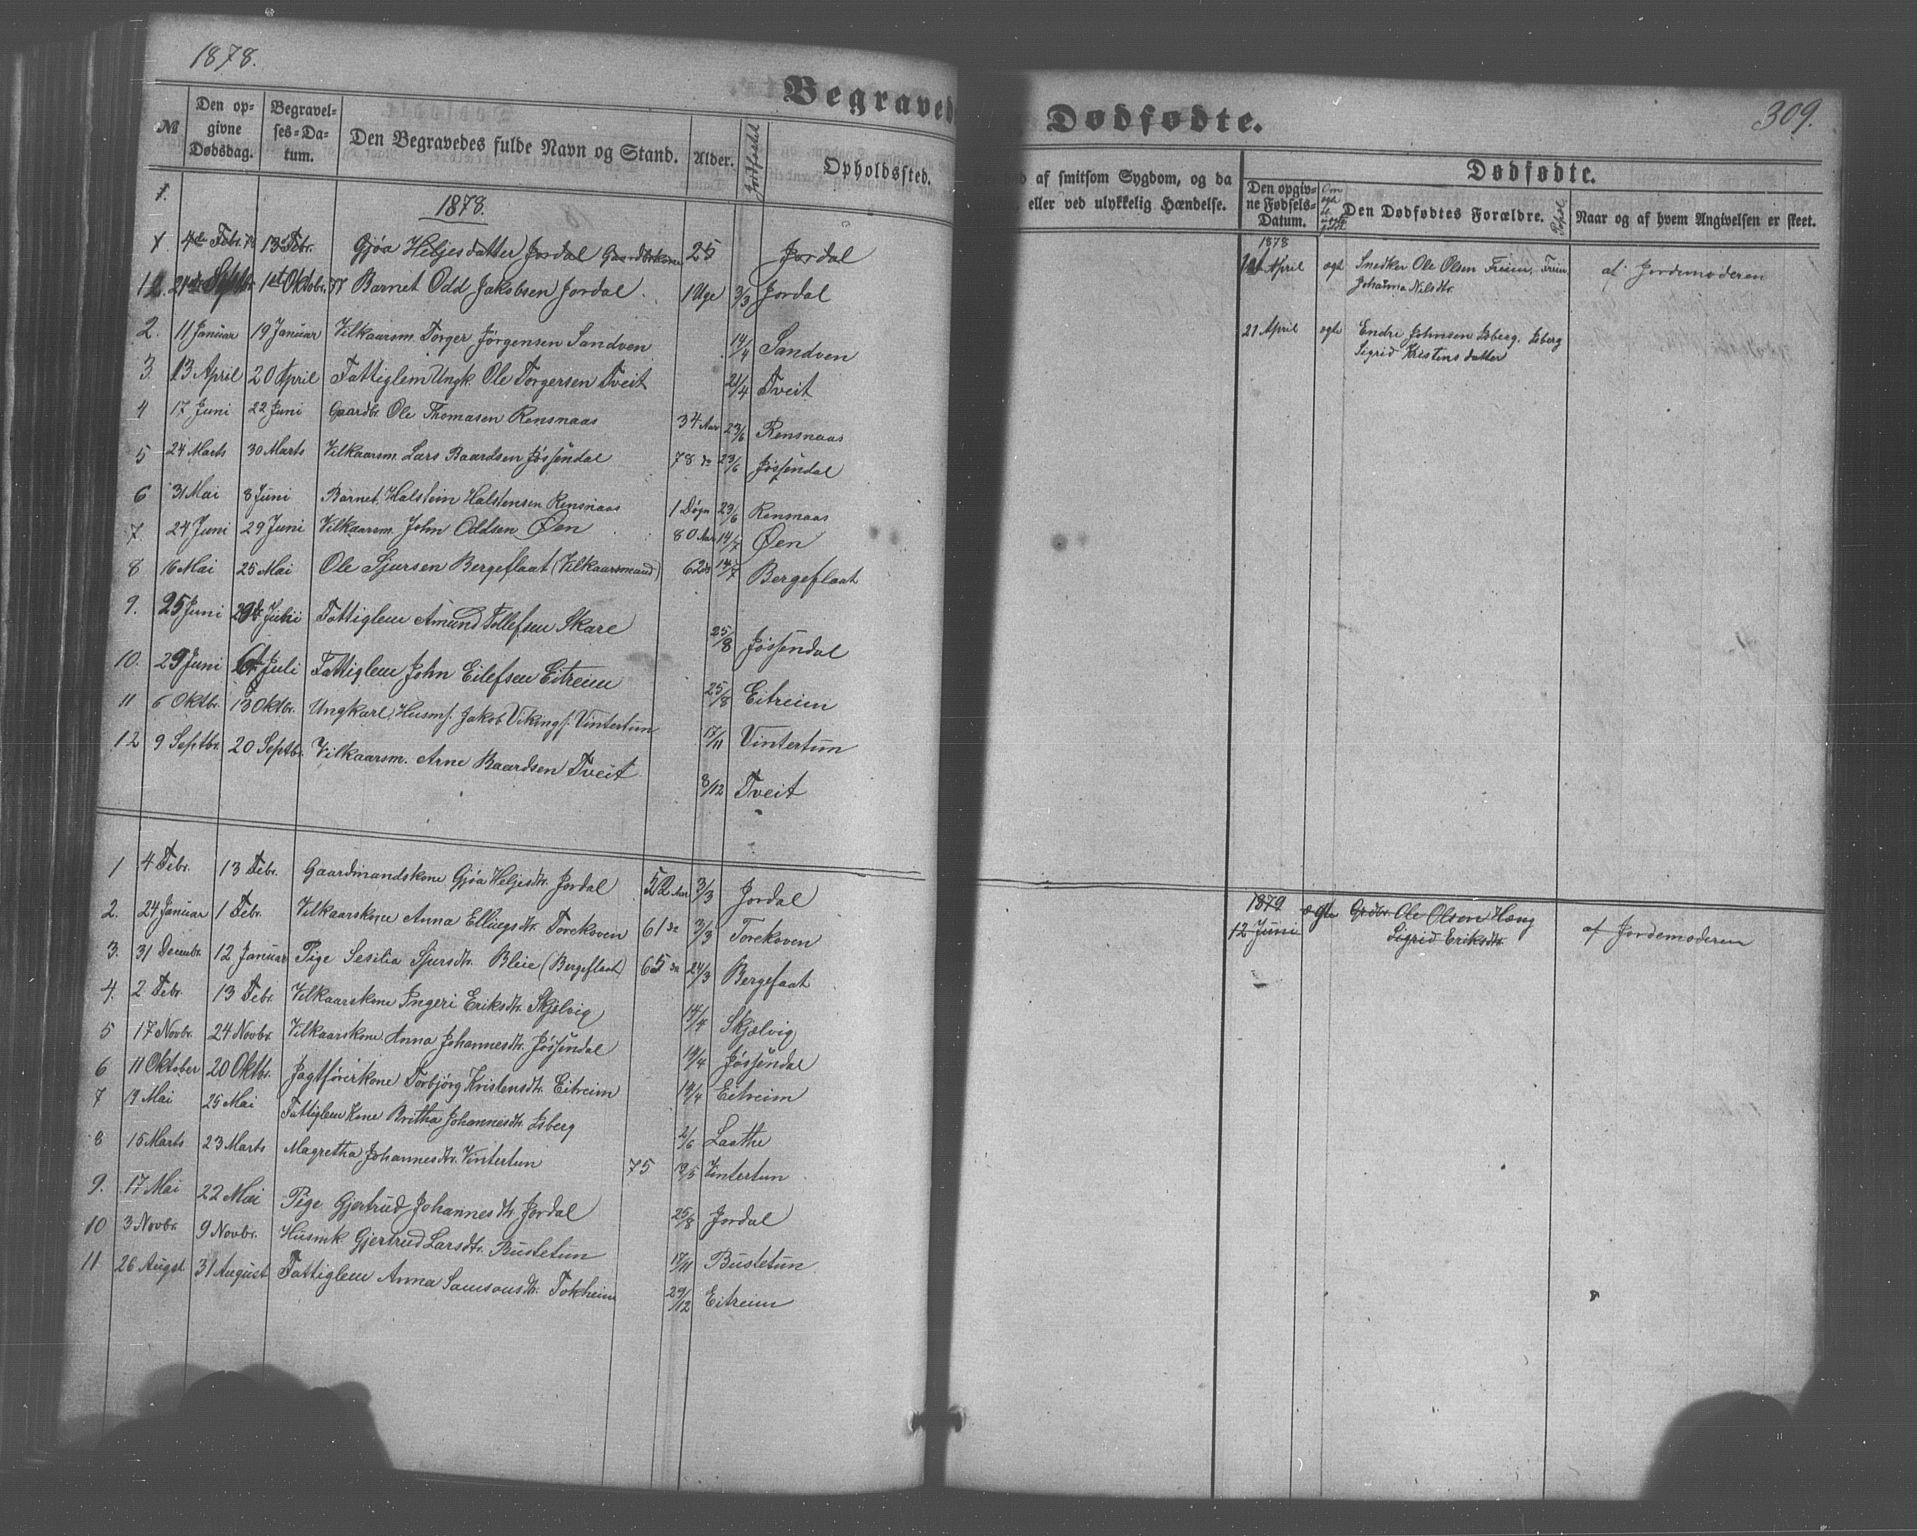 1878.
Begraved
№ Den opgivne Dødsdag. Begravelses-Datum. Den Begravedes fulde Navn og Stand. Alder. Jordfæstet Opholdssted.
1.
1878.
1 4de Febr. 13 Febr. Gjøa Heljesdatter Jordal Gaardbrkone 25 Jordal
1 Septbr 1st Oktobr. 77 Barnet Odd Jakobsen Jordal. 1 Uge 3/3 Jordal
2. 11 Januar 19 Januar Vilkaarsm. Torger Jørgensen Sandven 14/4 Sandven
3. 13 April 20 April Fattiglem Ungk. Ole Torgersen Tveit 21/4 Tveit
4 17 Juni 22 Juni Gaardbr. Ole Thomasen Rensnaas 34 Aar 23/6 Rensnaas
5 24 Marts 30 Marts Vilkaarsm. Lars Baardsen Jøssendal 78 do 23/6 Jøssendal
6 31 Mai 8 Juni Barnet Halstein Halstensen Rensnaas 1 Døgn 23/6 Rensnaas
7 24 Juni 29 Juni Vilkaarsm. John Oddsen Øen 80 Aar 14/7 Øen
8 16 Mai 25 Mai Ole Sjursen Bergeflaat (Vilkaarsmand) 62 do 14/7 Bergeflaat
9. 25 Juni Fattiglem Amund Tollefsen Skare 25/8 Jøssendal
10. 29 Juni 6 Juli Fattiglem John Eilefsen Eitreim 25/8 Eitreim
11 6 Oktbr. 13 Oktbr. Ungkarl, Husmf. Jakob Vikingf. Vintertun 17/11 Vintertun
12 9 Septbr. 20 Septbr. Vilkaarsm. Arne Baardsen Tveit 8/12 Tveit
1 4 Febr. 13 Febr. Gaardmandskone Gjøa Heljesdtr. Jordal 52 Aar 3/3 Jordal
2. 24 Januar 1 Febr. Vilkaarskone Anna Ellingsdtr. Torekoven 61 do 3/3 Torekoven
3. 31 Decembr. 12 Januar Pige Sesilia Sjursdtr. Bleie (Bergeflaat) 65 do 24/3 Bergefaat
4. 2 Febr. 13 Febr. Vilkaarskone Ingeri Eriksdtr. Skjelvig 14/4 Skjælvig
5 17 Novbr. 24 Novbr. Vilkaarskone Anna Johannesdtr. Jøssendal 19/4 Jøssendal
6 11 Oktober 20 Oktbr. Jagtførerkone Torbjörg Kristensdtr. Eitreim 19/4 Eitreim
7 19 Mai 25 Mai Fattiglem Kone Britha Johannesdtr. Isberg 2/6 Laathe
8 15 Marts 23 Marts Magretha Johannesdtr. Vintertun 75 19/5 Vintertun
9. 17 Mai 22 Mai Pige Gjertrud Johannesdtr. Jordal 25/8 Jordal
10 3 Novbr. 9 Novbr. Husmk. Gjertrud Larsdtr. Bustetun 17/11 Bustetun
11 26 Augst 31 August Fattiglem Anna Samsonsdtr. Tokheim 29/12 Eitreim
Dødfødte.
309.
af smitsom Sygdom, og da eller ved ulykkelig Hændelse.
Dødfødte.
Den opgivne Fødsels-Datum. Om Den Dødfødtes Forældre. Naar og af hvem Angivelsen er skeet.
1878
April ægt Snedker Ole Olsen Freim, Freim af Jordemoderen
Johanna Nilsdtr.
21 April ægte Endre Johnsen Isberg. Isberg
Sigrid Kristensdatter
1879 ægte Grdbr. Ole Olsen Hæng
12 Juni Sigrid Eriksdtr. af Jordemoderen